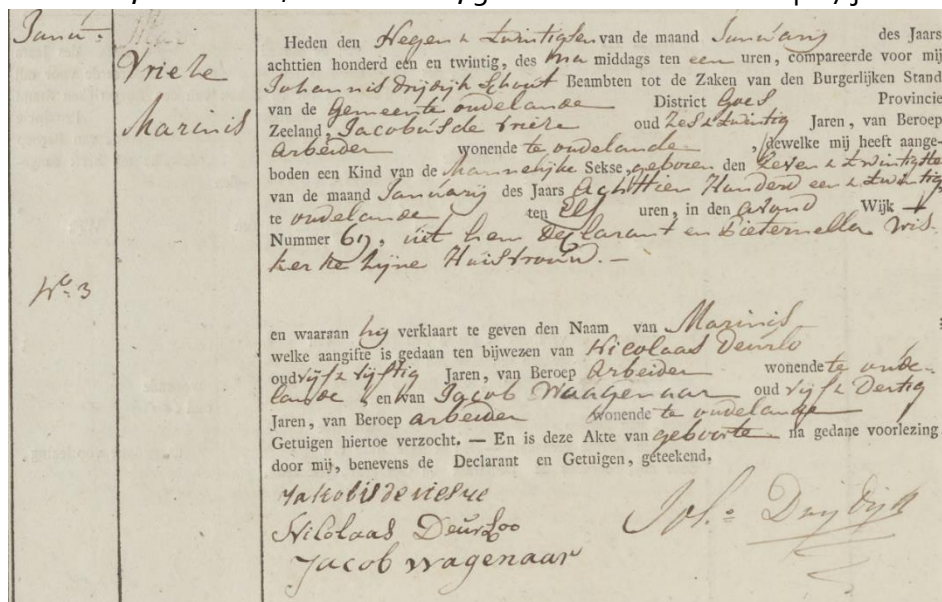 Januarÿ
Vriese
Marinis
Nº. 3
Heden den Negen & twintigsten van de maand Januarij des Jaars
achttien honderd een en twintig, des na middags ten een uren, compareerde voor mij
Johannis Drijdijk Schout Beambten tot de Zaken van den Burgerlijken Stand
van de Gemeente oudelande District Goes Provincie
Zeeland, Jacobus de vrieze oud Zes & twintig Jaren, van Beroep
Arbeider wonende te oudelande, dewelke mij heeft aange-
boden een Kind van de Mannelijke Sekse, geboren den Zeven & twintigste
van de maand Januarij des Jaars Achttien Honderd een & twintig
te oudelande ten Elf uren, in den avond Wijk
Nummer 69, uit hem Declarant en Pieternella Wis-
kerke Zijne Huisvrouw. —
en waaraan hij verklaart te geven den Naam van Marinis ;
welke aangifte is gedaan ten bijwezen van Nicolaas Deurlo
oud vijf & vijftig Jaren, van Beroep Arbeider wonende te oude-
lande en van Jacob Waagenaar oud vijf & Dertig
Jaren, van Beroep arbeider wonende te oudelande
Getuigen hiertoe verzocht. — En is deze Akte van geboorte na gedane voorlezing
door mij, benevens de Declarant en Getuigen, geteekend.
Jakobus de viesue
Nicolaas Deurloo
Joh.s Drijdijk
Jacob Wagenaar